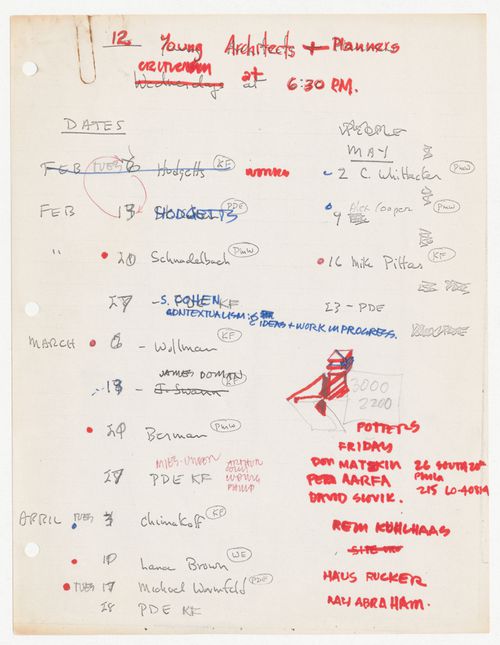 12 Young Architects + Planners
criticism at
Wednesdays at 6:30 P.M.
DATES
PEOPLE
FEB TUES 6 Hodgetts KF works
FEB 13 HODGETTS PDE
" 20 Schnadelbach PMW
27 - PDE KF
S. COHEN
CONTEXTUALISM:
IDEAS + WORK IN PROGRESS.
MARCH 6 - Wollman KF
JAMES DOMAN
13 - J. Swann KF
20 Berman PMW
27 PDE KF
APRIL TUES 3 Chimakoff KF
10 Lance Brown WE
TUES 17 Michael Wurmfeld PDE
28 PDE KF
MAY
2 C. Whittacker PMW
9 Alex Cooper PMW
16 Mike Pittas KF
23 - PDE
3000
2200
POTTERS
FRIDAY
DON MATZKIN 26 SOUTH 20th
PETE AARFA Phila
DAVID SLOVIK. 215 LO-40814
REM KOHLHAAS
SITE
HAUS RUCKER
RAY ABRAHAM.